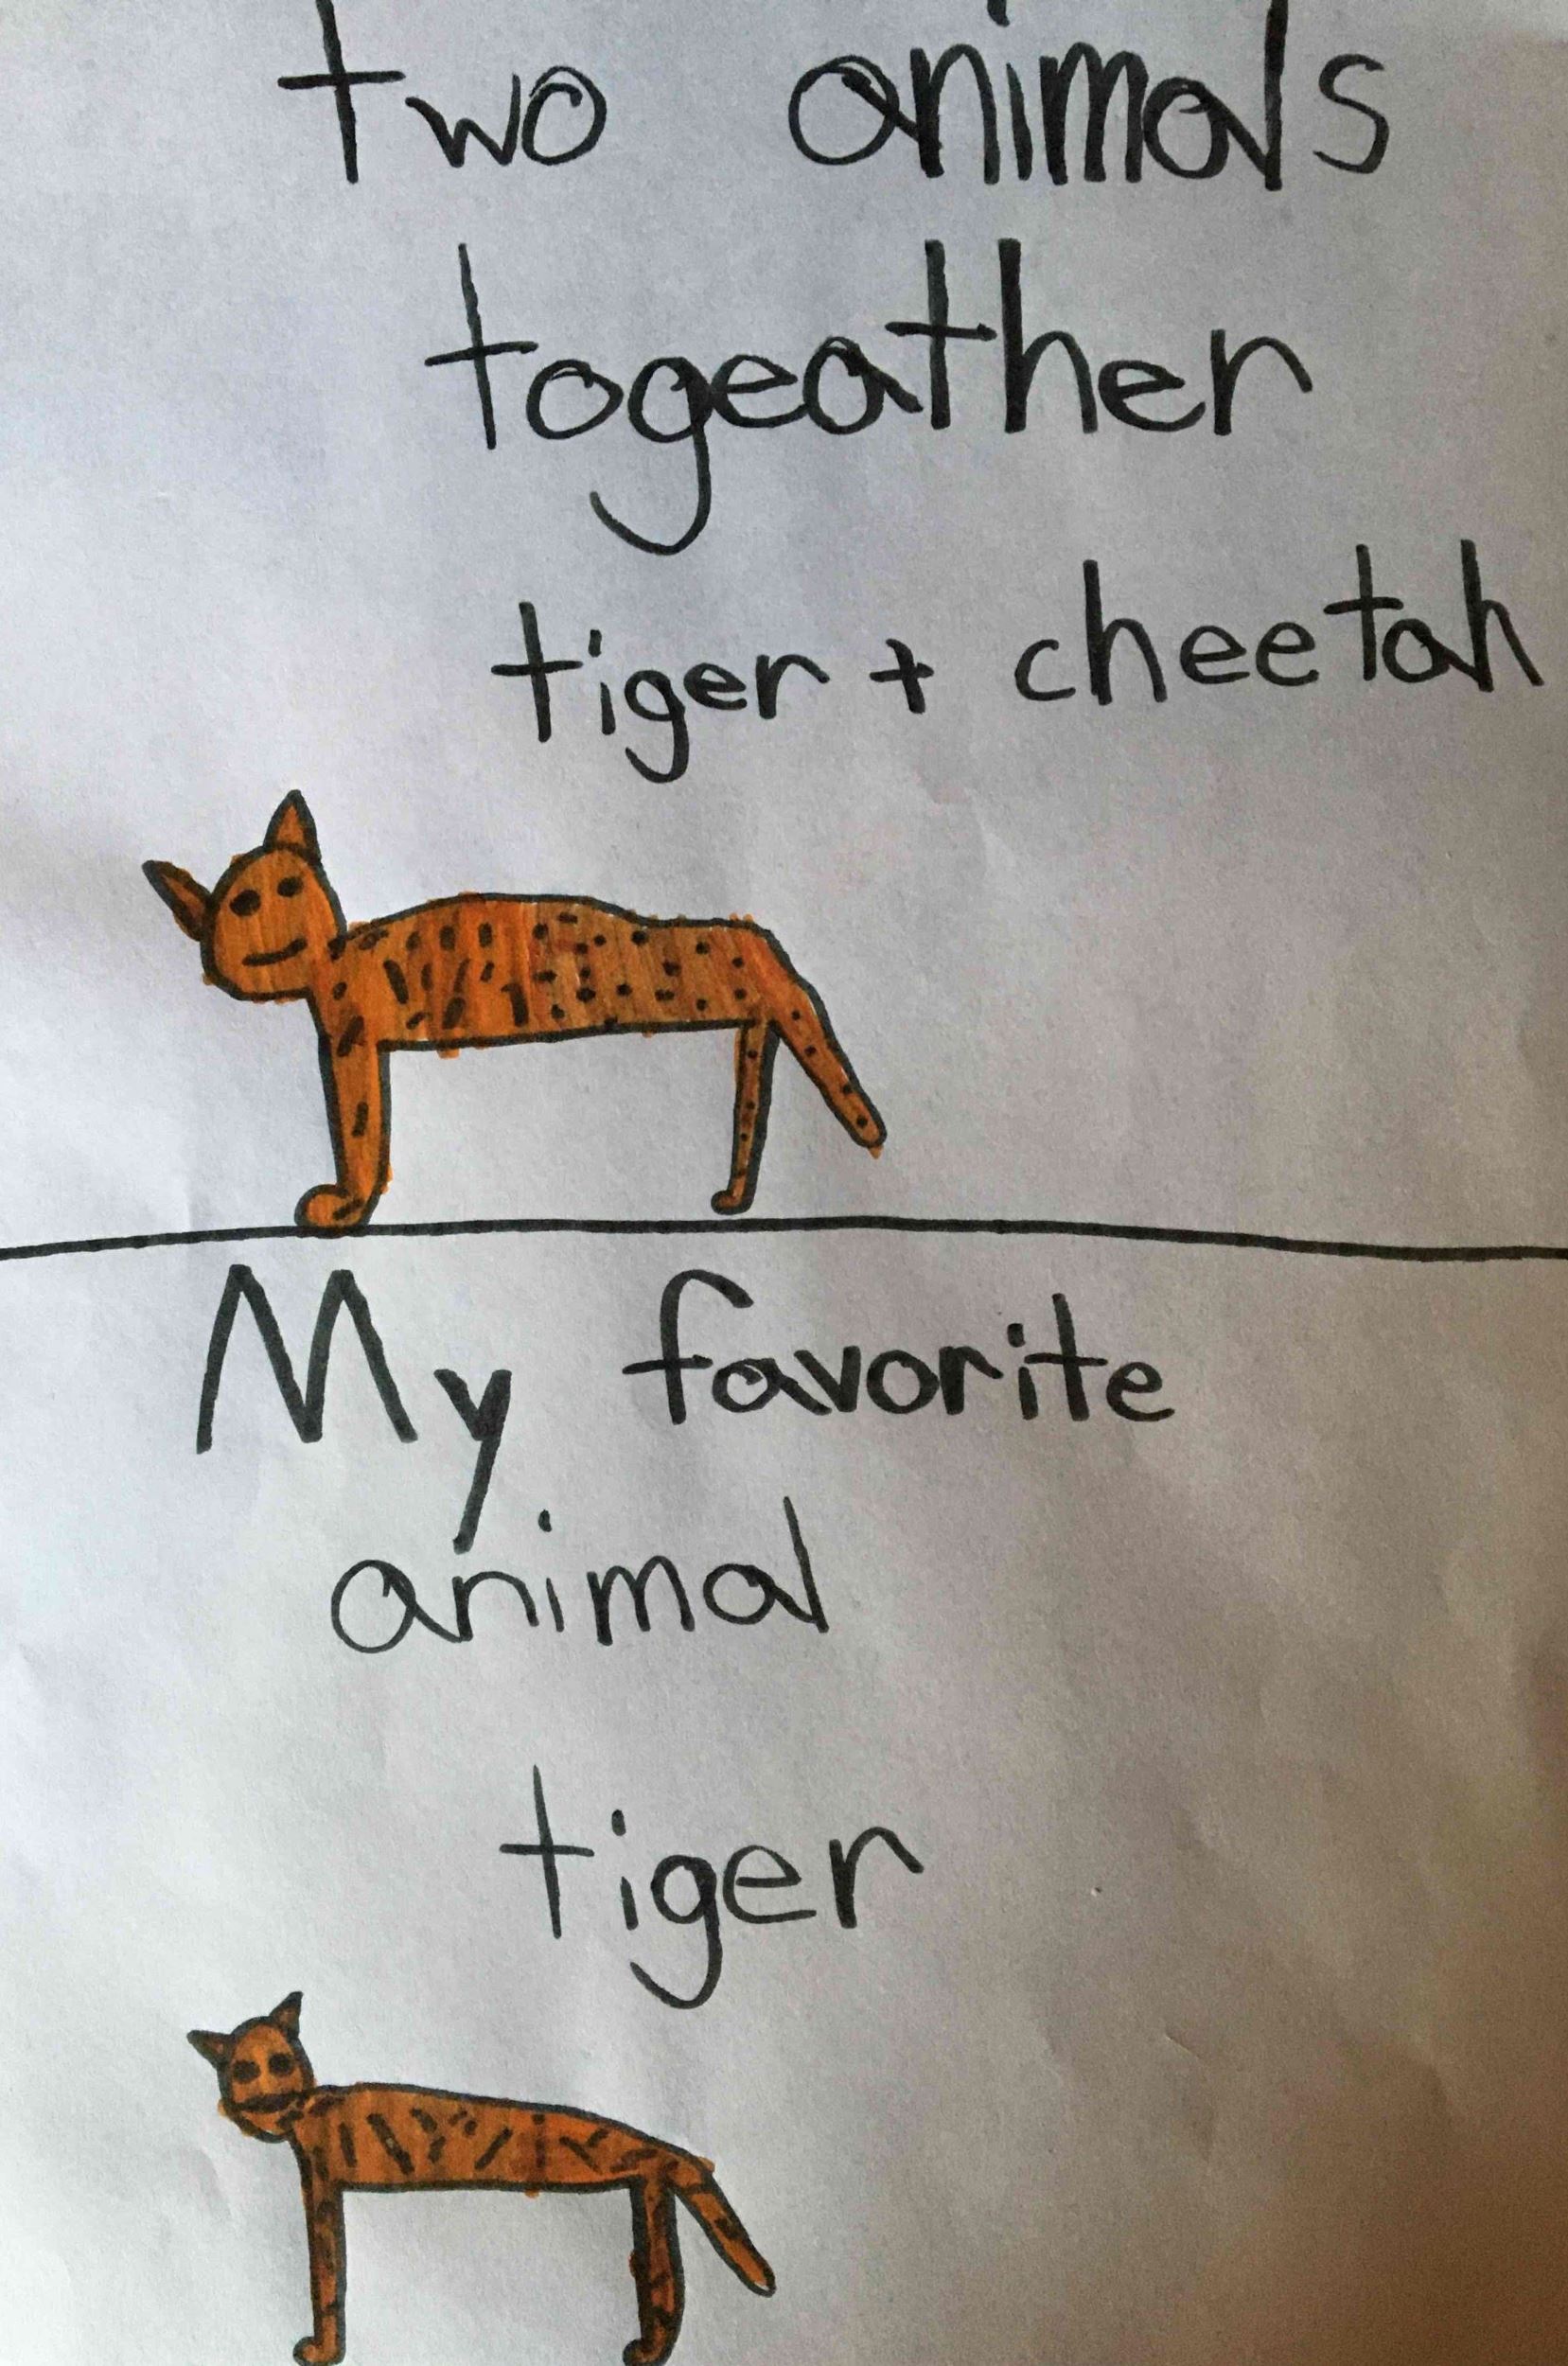 two animals
togeather
tiger + cheetah
My favorite
animal
tiger